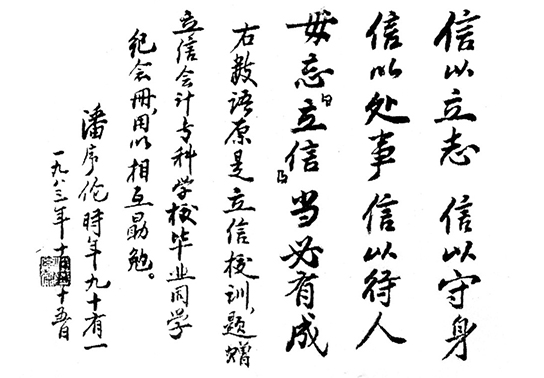 信以立志 信以守身
信以处事 信以待人
毋忘立信 当必有成
右数语原是立信校训,题赠
立信会计专科学校毕业同学
纪念册,用以相互勖勉。
潘序伦時年九十有一
一九八三年十 十五日